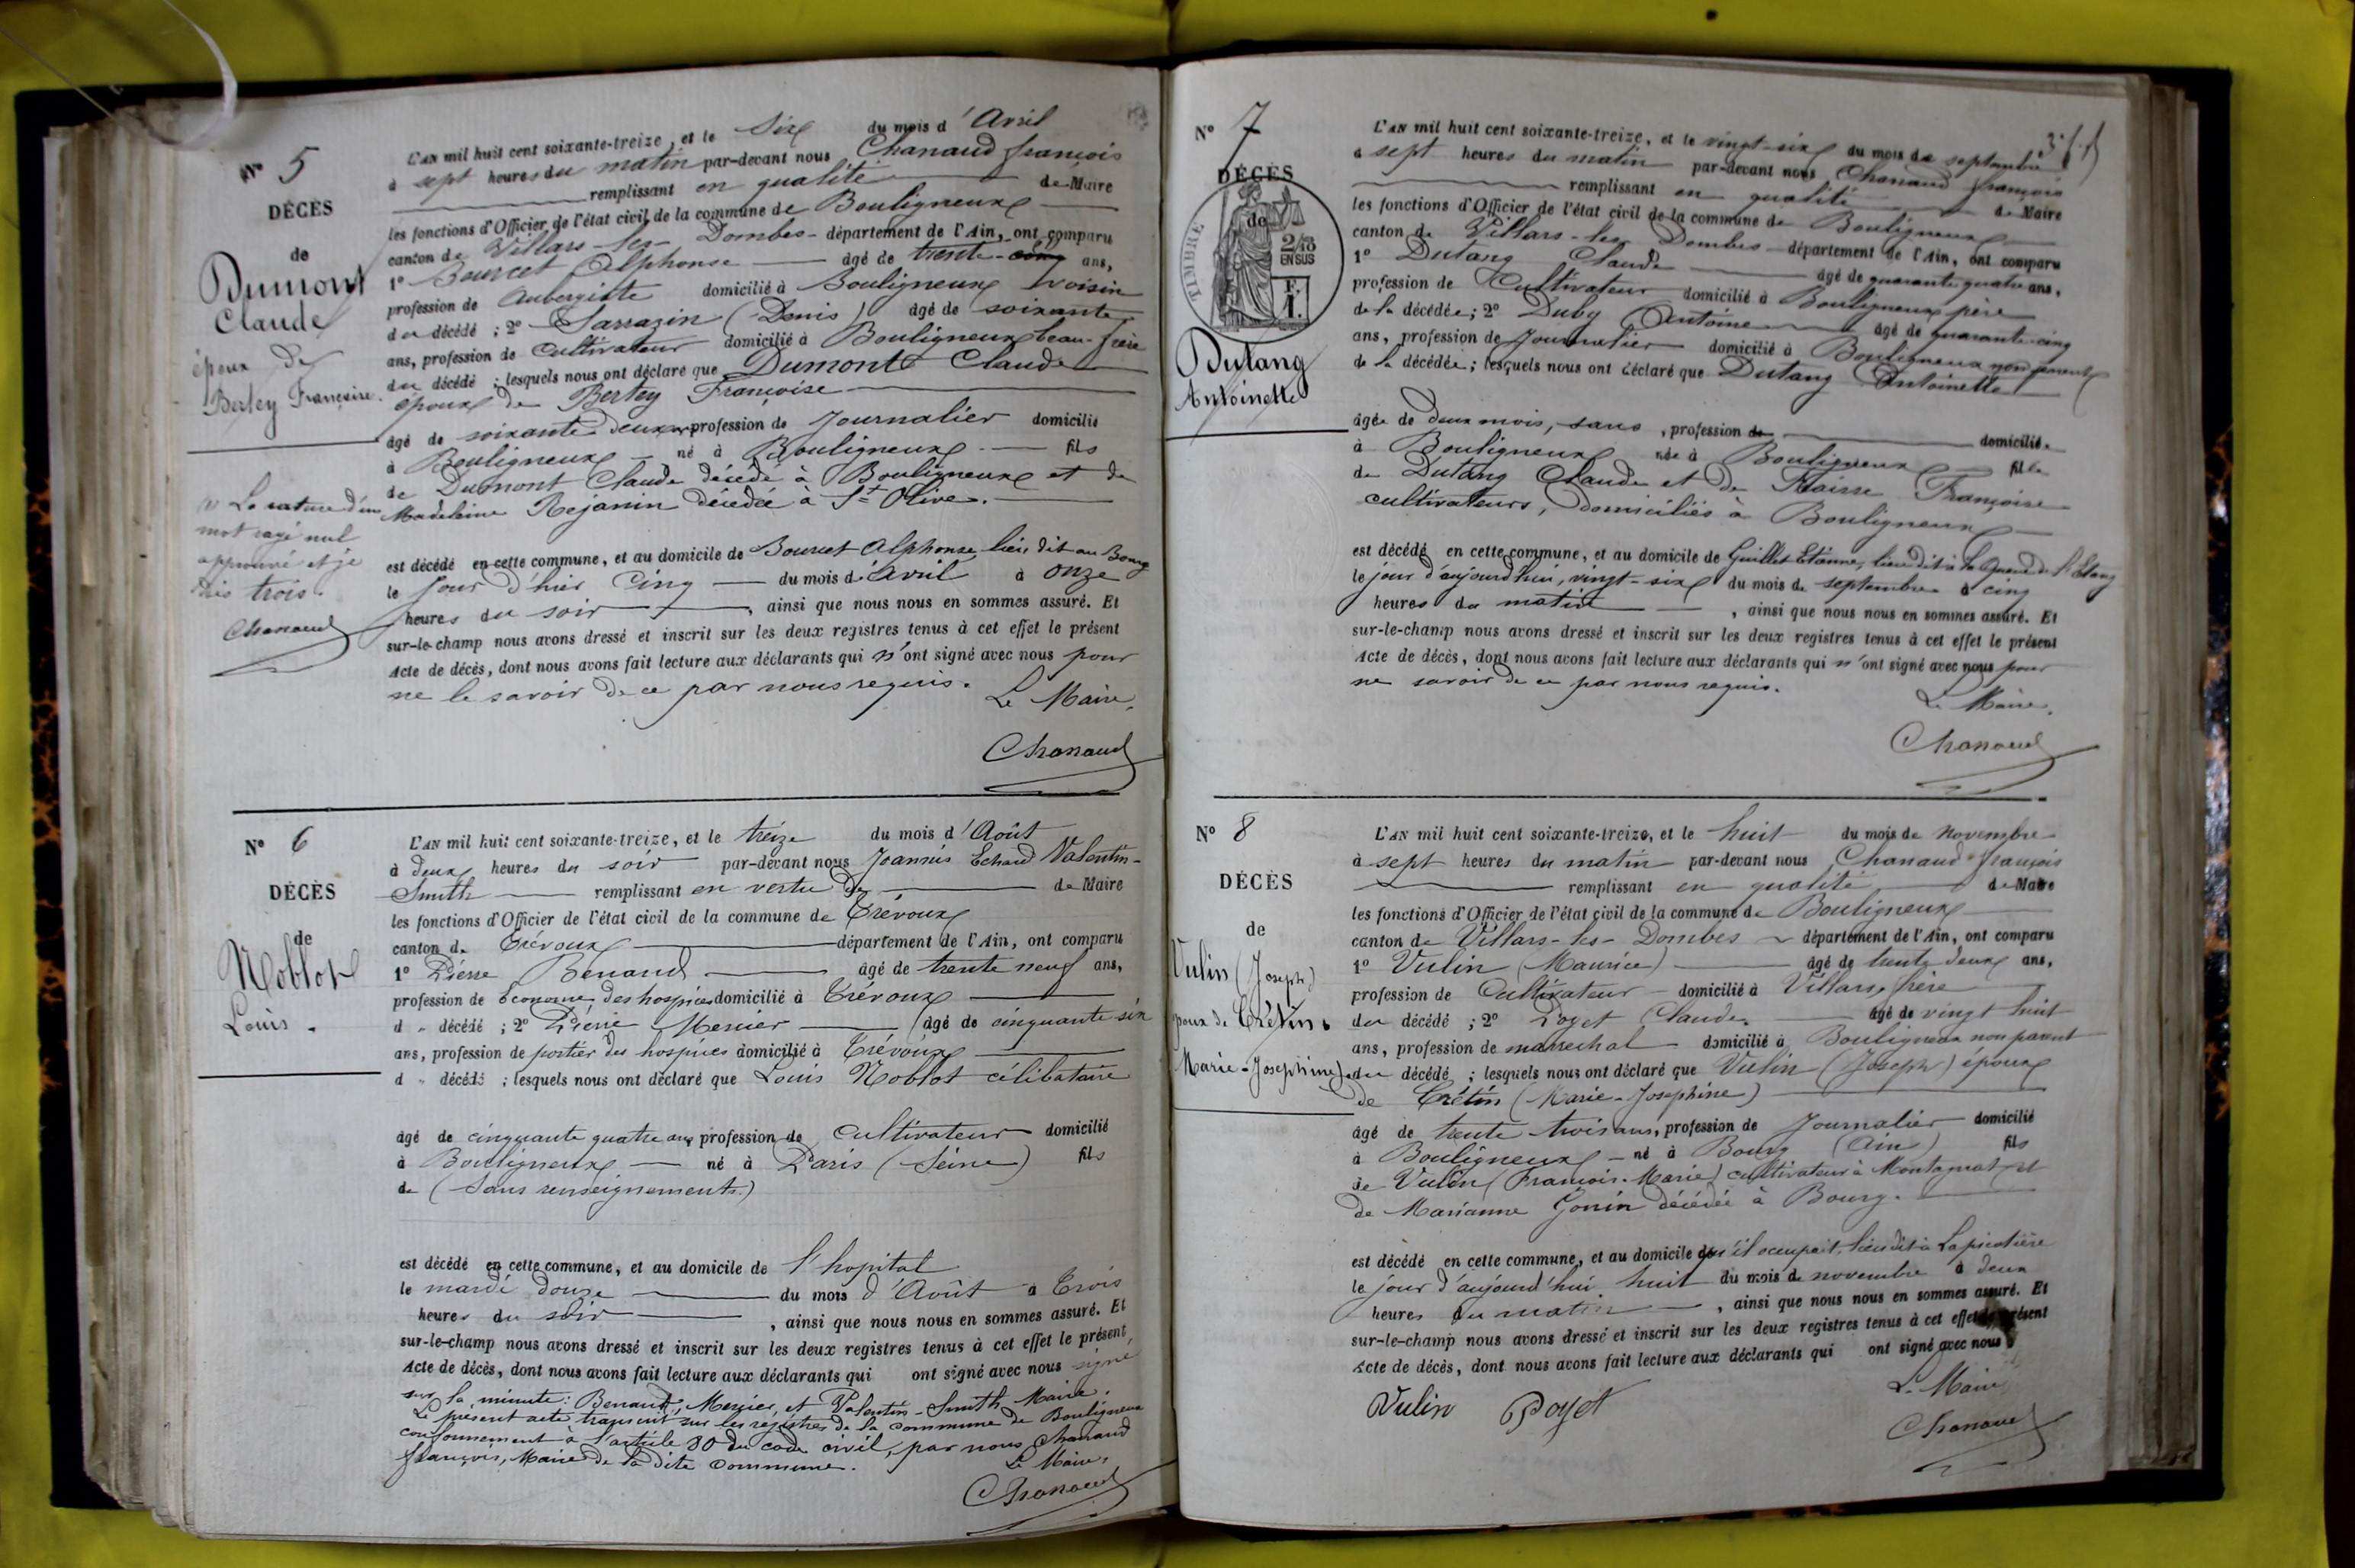 N° 5
DÉCÈS
de
Dumont
Claude
époux de
Bertey Françoise.
L'AN mil huit cent soixante-treize, et le Six du mois d'Avril
à sept heures du matin par-devant nous Chanaud françois
remplissant en qualité de Maire
les fonctions d'Officier de l'état civil de la commune de Bouligneux
canton de Villars-les-Dombes département de l'Ain, ont comparu
1° Bourcet Alphonse âgé de trente-cinq ans,
profession de Aubergiste domicilié à Bouligneux voisin
du décédé ; 2° Sarrazin (Denis) âgé de soixante
ans, profession de cultivateur domicilié à Bouligneux beau-frère
du décédé ; lesquels nous ont déclaré que Dumont Claude
époux de Bertey Françoise
âgé de soixante deux ans profession de Journalier domicilié
à Bouligneux né à Bouligneux fils
de Dumont Claude décédé à Bouligneux et de
Madeleine Rejanin décédée à St Olive.
mot rayé nul
approuvé et je
dis trois.
Chanaud
est décédé en cette commune, et au domicile de Bourcet Alphonse, lieu dit au Bourg
le Jour d'hier Cinq du mois d'avril à onze
heures du soir, ainsi que nous nous en sommes assuré. Et
sur-le-champ nous avons dressé et inscrit sur les deux registres tenus à cet effet le présent
Acte de décès, dont nous avons fait lecture aux déclarants qui n'ont signé avec nous pour
ne le savoir de ce par nous requis.
Le Maire,
Chanaud
N° 6
DÉCÈS
de
Noblot
Louis.
L'AN mil huit cent soixante-treize, et le treize du mois d'Août
à deux heures du soir par-devant nous Joannès Echard Valentin-
Smith remplissant en vertu de de Maire
les fonctions d'Officier de l'état civil de la commune de Trévoux
canton de Trévoux département de l'Ain, ont comparu
1° Pierre Benaud âgé de trente neuf ans,
profession de Econome des hospices domicilié à Trévoux
d " décédé ; 2° Pierre Mercier âgé de cinquante six
ans, profession de portier des hospices domicilié à Trévoux
d " décédé ; lesquels nous ont déclaré que Louis Noblot célibataire
âgé de cinquante quatre ans, profession de Cultivateur domicilié
à Bouligneux né à Paris (Seine) fils
de (Sans renseignements)
est décédé en cette commune, et au domicile de l'hopital
le mardi douze du mois d'Août à Trois
heures du soir, ainsi que nous nous en sommes assuré. Et
sur-le-champ nous avons dressé et inscrit sur les deux registres tenus à cet effet le présent
Acte de décès, dont nous avons fait lecture aux déclarants qui ont signé avec nous signé
sur la minute : Benaud, Mercier, et Valentin-Smith Maire.
Le présent acte transcrit sur les registres de la commune de Bouligneux
conformément à l'article 80 du code civil, par nous Chanaud
françois, Maire de la dite commune.
Le Maire,
Chanaud
N° 7
DÉCÈS
de
TIMBRE
2/10
EN SUS
F.
1.
Dutang
Antoinette
L'AN mil huit cent soixante-treize, et le vingt-six du mois de septembre
à sept heures du matin par-devant nous Chanaud françois
remplissant en qualité de Maire
les fonctions d'Officier de l'état civil de la commune de Bouligneux
canton de Villars-les Dombes département de l'Ain, ont comparu
1° Dutang Claude âgé de quarante quatre ans,
profession de Cultivateur domicilié à Bouligneux père
de la décédée ; 2° Duby Antoine âgé de quarante-cinq
ans, profession de Journalier domicilié à Bouligneux non parent
de la décédée ; lesquels nous ont déclaré que Dutang Antoinette
âgée de deux mois, sans, profession de domiciliée
à Bouligneux née à Bouligneux fille
de Dutang Claude et de Françoise
cultivateurs, domiciliés à Bouligneux
est décédé en cette commune, et au domicile de Guillet Etienne, lieu dit à la queue de l'Etang
le jour d'aujourd'hui, vingt-six du mois de septembre à cinq
heures du matin, ainsi que nous nous en sommes assuré. Et
sur-le-champ nous avons dressé et inscrit sur les deux registres tenus à cet effet le présent
Acte de décès, dont nous avons fait lecture aux déclarants qui n'ont signé avec nous pour
ne savoir de ce par nous requis.
Le Maire,
Chanaud
N° 8
DÉCÈS
de
Vulin (Joseph)
époux de Crétin
Marie-Josephine
L'AN mil huit cent soixante-treize, et le huit du mois de novembre
à sept heures du matin par-devant nous Chanaud françois
remplissant en qualité de Maire
les fonctions d'Officier de l'état civil de la commune de Bouligneux
canton de Villars-les-Dombes département de l'Ain, ont comparu
1° Vulin (Maurice) âgé de trente deux ans,
profession de Cultivateur domicilié à Villars, frère
du décédé ; 2° Poyet Claude âgé de vingt huit
ans, profession de marrechal domicilié à Bouligneux non parent
du décédé ; lesquels nous ont déclaré que Vulin (Joseph) époux
de Crétin (Marie-Josephine)
âgé de trente trois ans, profession de Journalier domicilié
à Bouligneux né à Bourg (Ain) fils
de Vulin (François-Marie) cultivateur à Montagnat et
de Marianne Gonin décédée à Bourg.
est décédé en cette commune, et au domicile qu'il occupait, lieu dit à Lapicotière
le jour d'aujourd'hui huit du mois de novembre à deux
heures du matin, ainsi que nous nous en sommes assuré. Et
sur-le-champ nous avons dressé et inscrit sur les deux registres tenus à cet effet le présent
Acte de décès, dont nous avons fait lecture aux déclarants qui ont signé avec nous
Le Maire
Vulin Poyet
Chanaud